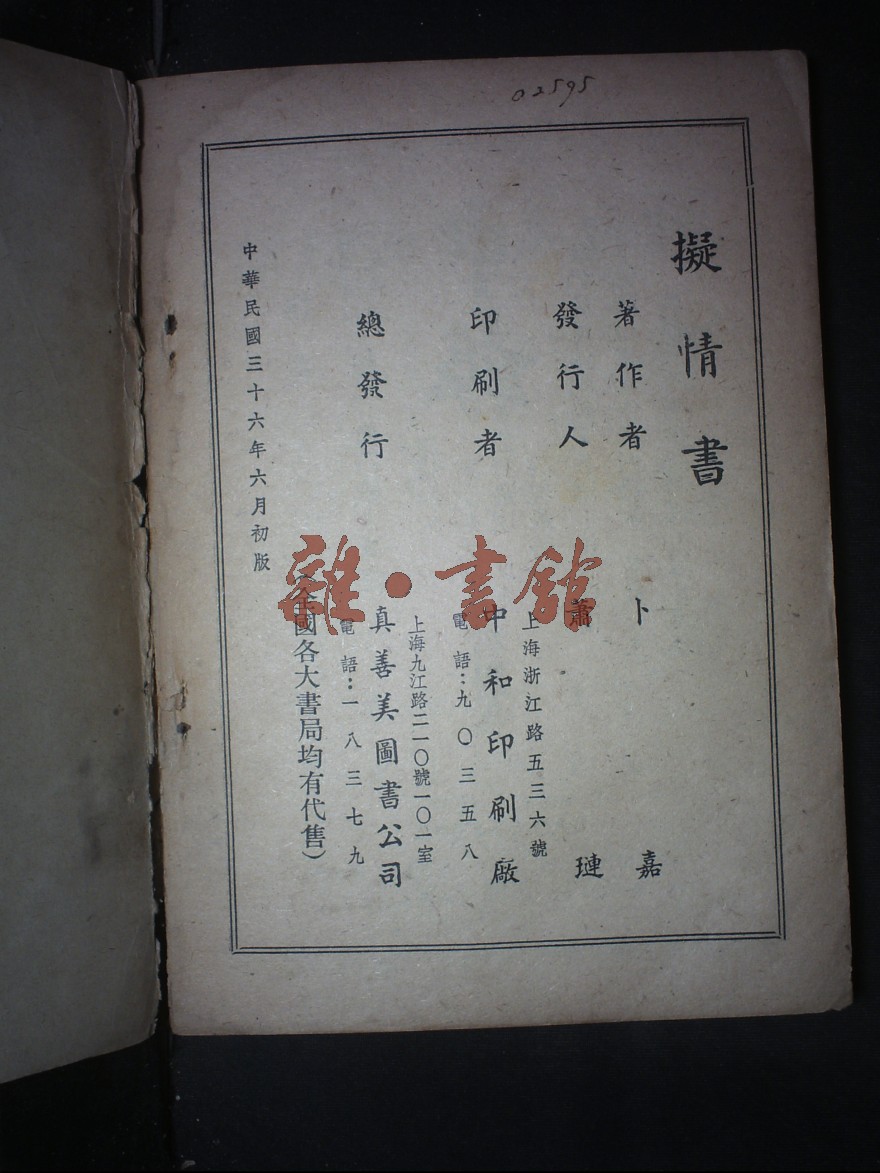 02595
擬情書
著作者 卜嘉
發行人 蕭璉
上海浙江路五三六號
印刷者 中和印刷廠
電語：九〇三五八
上海九江路二一〇號一〇一室
總發行 真善美圖書公司
電語：一八三七九
（全國各大書局均有代售）
中華民國三十六年六月初版
雜·書館